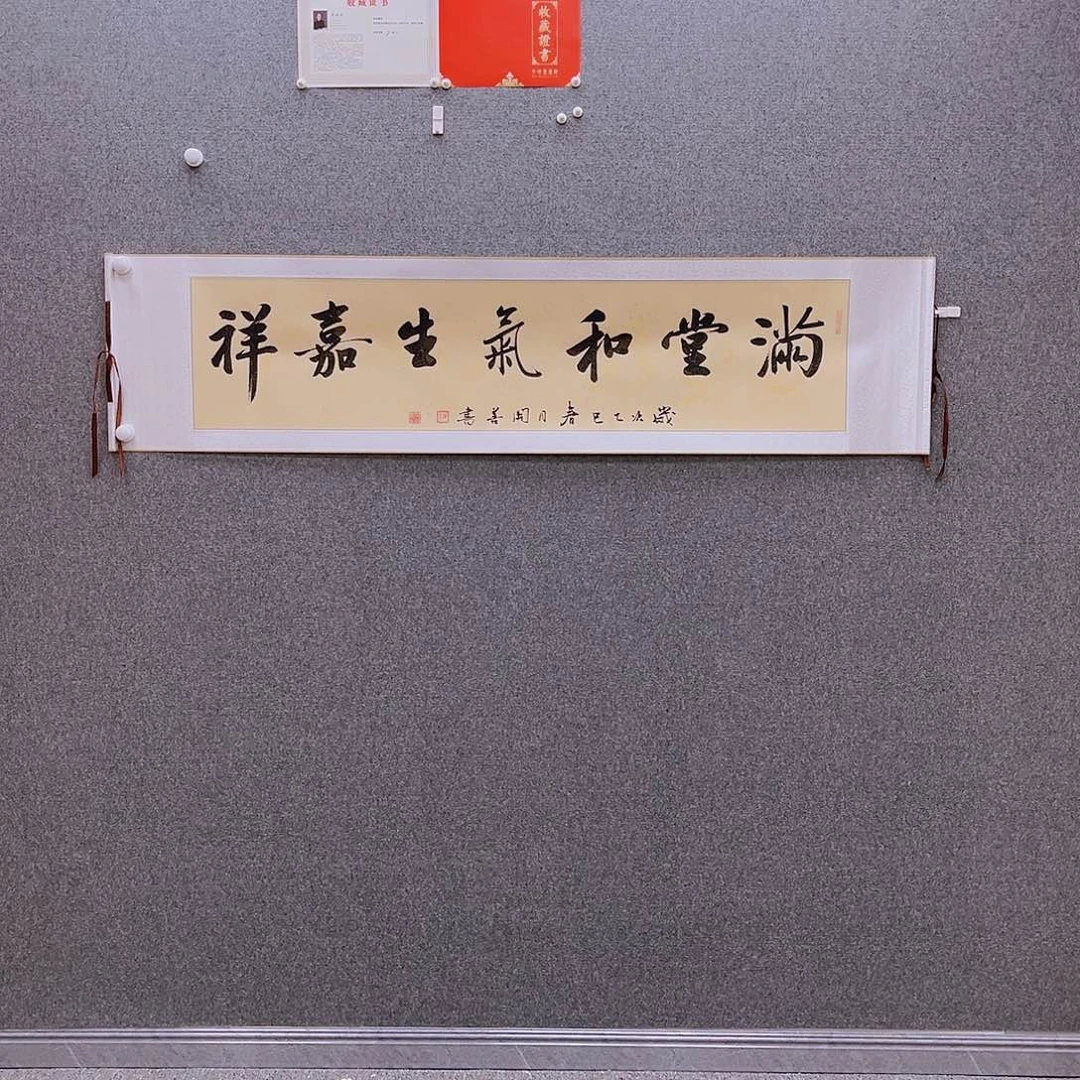 收藏证书
收藏證書
滿堂和氣生嘉祥
歲次乙巳春月開善書